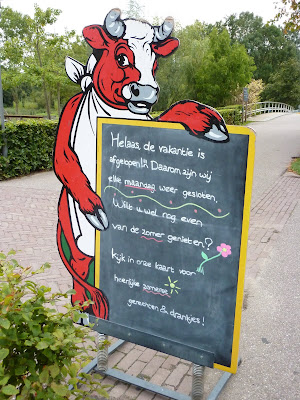 Helaas, de vakantie is
afgelopen!! Daarom zijn wij
elke maandag weer gesloten.
Wilt u wel nog even
van de zomer genieten?
Kijk in onze kaart voor
heerlijke zomerse
gerechten & drankjes!